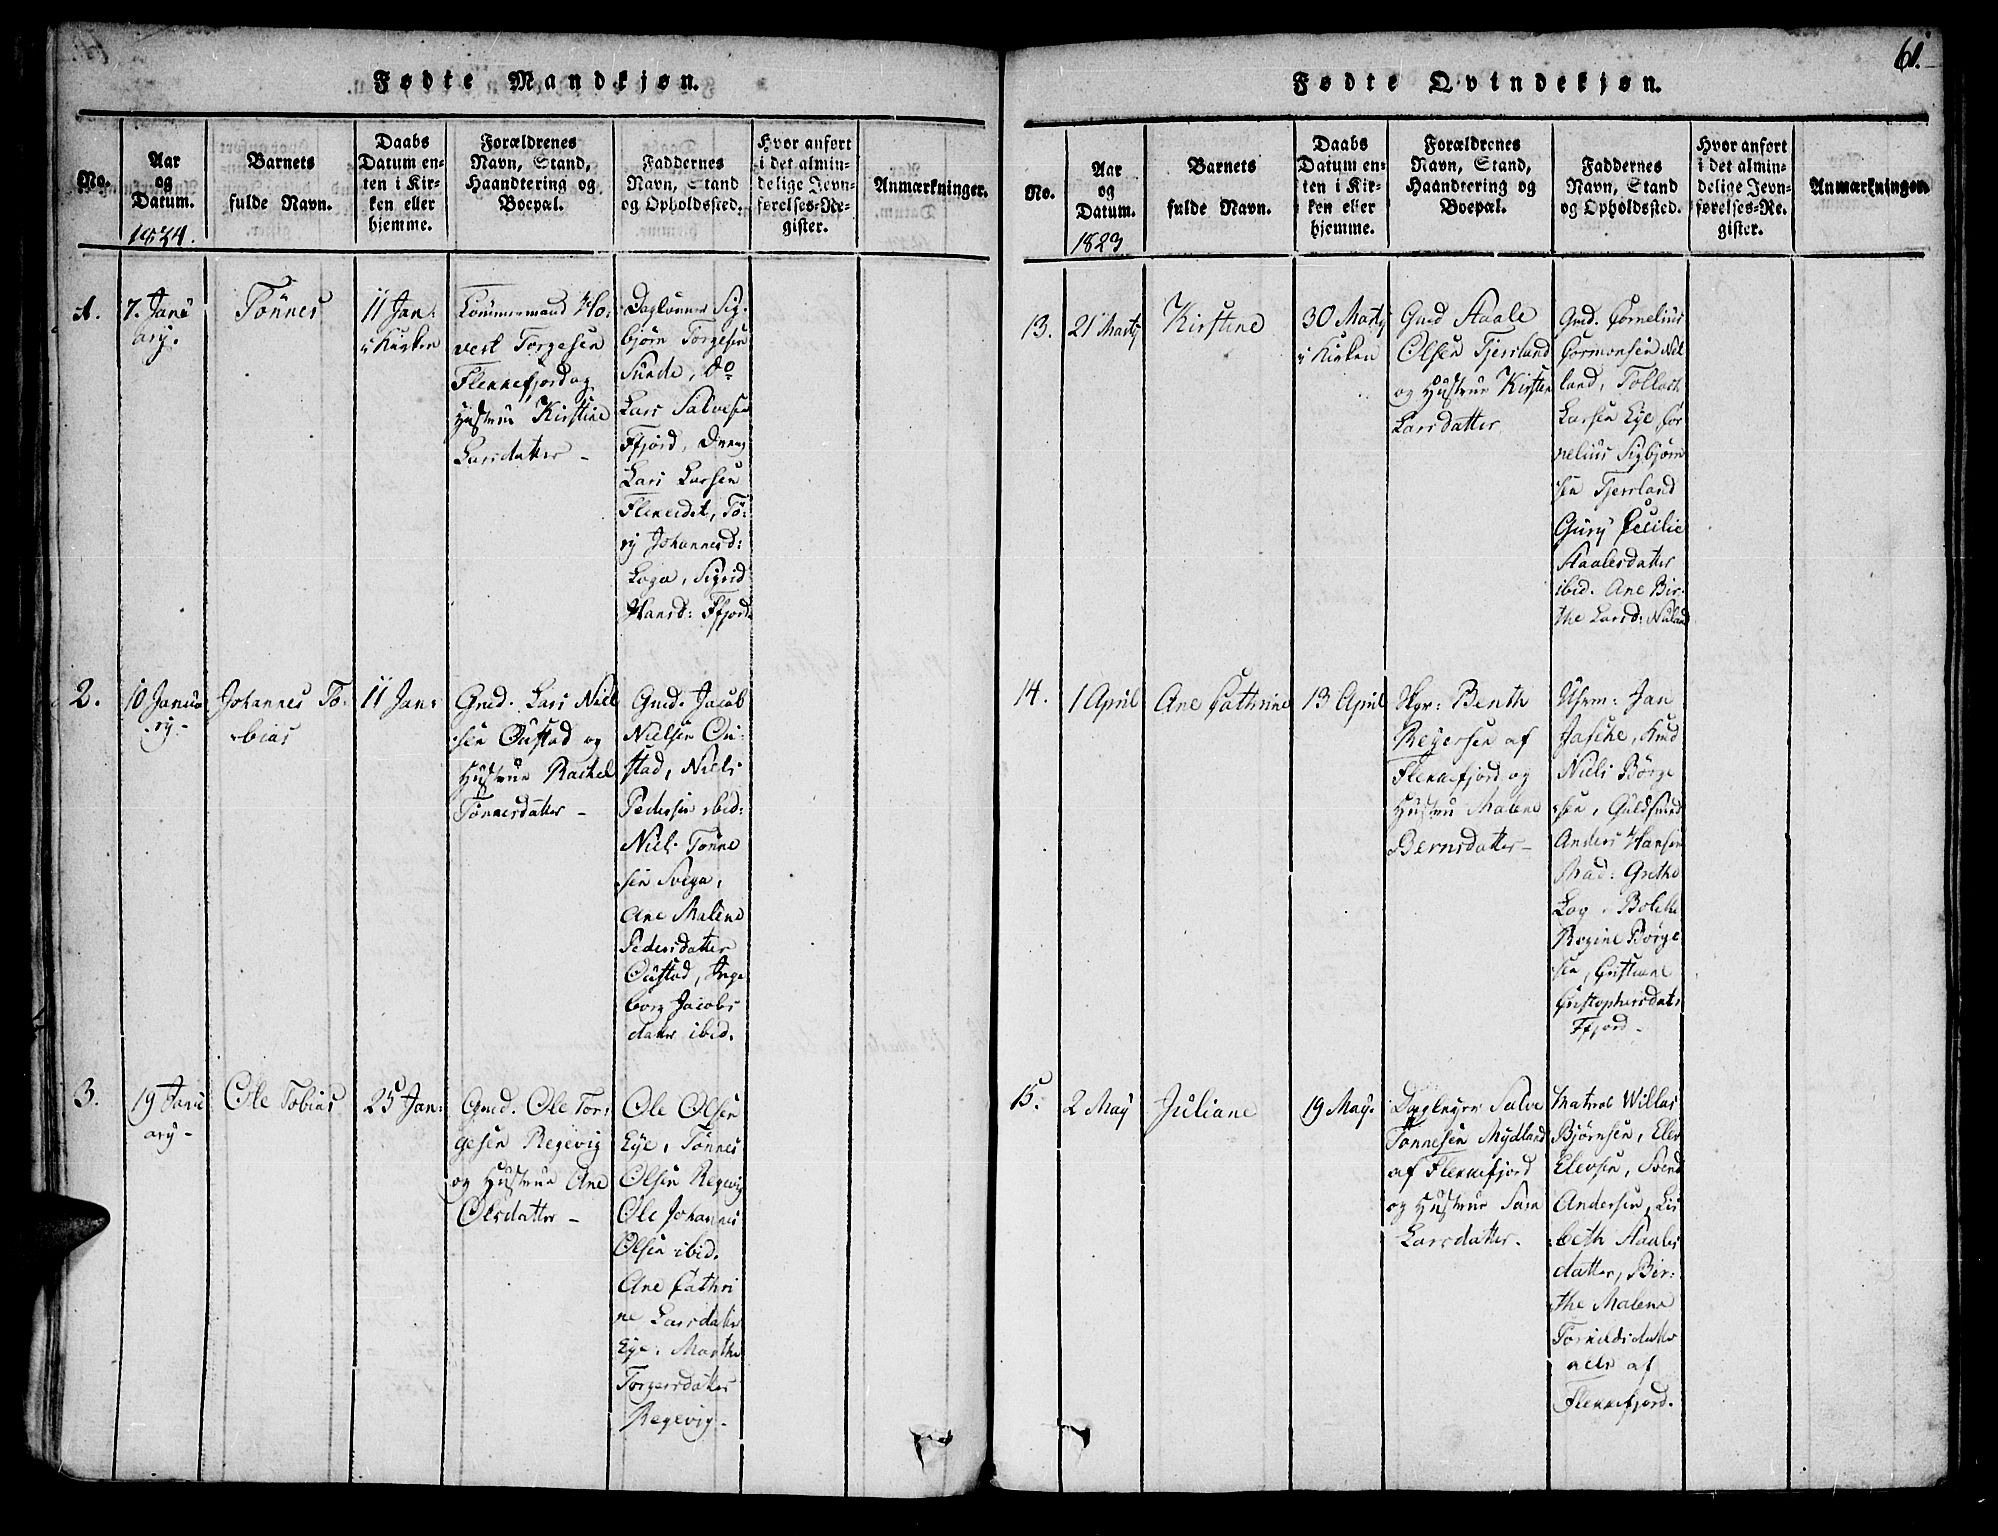 61.
Fødte Mandkjøn.
No.
Aar
og
Datum.
1824.
Barnets
fulde Navn.
Daabs
Datum en-
ten i Kir-
ken eller
hjemme.
Forældrenes
Navn, Stand,
Haandtering og
Boepæl.
Faddernes
Navn, Stand
og Opholdssted.
Hvor anført
i det almin-
delige Jevn-
førelses-Re-
gister.
Anmærkninger.
1.
7. Janu
ary.
Tönnes
11 Jan:
i Kirken
Tömmermand Ho-
vert Torgesen
Flekkefjord og
Hustrue Kirstine
Larsdatter -
Daglönner Sig-
björn Torgesen
Sunde, do
Lars Salvesen
Ffjord, Dreng
Lars Larsen
Flekeidet, Tö-
ry Johannesd:
Loga, Sigrid
Hansd: Ffjord
2.
10 Janua
ry -
Johannes To-
bias
11 Jan:
Gmd. Lars Niel
sen Oustad og
Hustrue Rachel
Tönnesdatter -
Gmd. Jacob
Nielsen Ou-
stad, Niels
Pedersen ibid:
Niels Tönne
sen Svega,
Ane Malene
Pedersdatter
Oustad, Inge
borg Jacobs
datter ibid.
3.
19 Janu
ary -
Ole Tobias
25 Jan:
Gmd. Ole Tor-
gesen Regevig
og Hustrue Ane
Olsdatter -
Ole Olsen
Eye, Tönnes
Olsen Regevig
Ole Johannes
Olsen ibid.
Ane Cathri
ne Larsdatter
Eye, Marthe
Torgersdatter
Regevig -
Fødte Qvindekjøn.
No.
Aar
og
Datum.
1823
Barnets
fulde Navn.
Daabs
Datum en-
ten i Kir-
ken eller
hjemme.
Forældrenes
Navn, Stand,
Haandtering og
Boepæl.
Faddernes
Navn, Stand
og Opholdssted.
Hvor anført
i det almin-
delige Jevn-
førelses-Re-
gister.
Anmærkninger.
13.
21 Marty
Kirstine
30 Marty
i Kirken
Gmd Staale
Olsen Tjersland
og Hustrue Kirsten
Larsdatter
Gmd. Cornelius
Gormonsen Nu
land, Tollach
Larsen Eye Cor
nelius Sigbjörn
sen Tjersland
Gury Cecilie
Staalesdatter
ibid. Ane Bir-
the Larsd: Nuland
14.
1 April
Ane Cathrine
13 April
Skpr: Benth
Reyersen af
Flekkefjord og
Hustru Malene
Bernsdatter -
Jan
Jasche,
Niels Börge
sen, Guldsmed
Anders Hansen
Mad: Grethe
Log, Bolethe
Regine Börge
sen, Cristiane
Cristophersdatr
Ffjord -
15.
2 May
Juliane
19 May.
Dagleyer Salve
Tönnesen Mydland
af Flekkefjord
og Hustrue Sara
Larsdatter.
Matros Willas
Bjørnsen, Elev
Elevsen, Svend
Andersen, Lis
beth Staales
datter, Bir-
the Malene
Torkildsdatter
alle af
Flekkefjord.